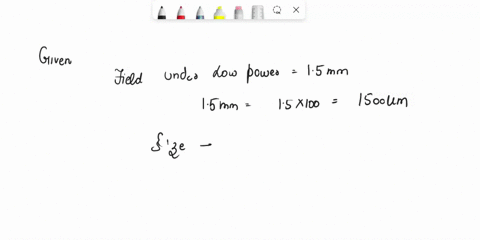 Given
Field under Low power = 1.5mm
1.5mm = 1.5×100 = 1500um
Size →